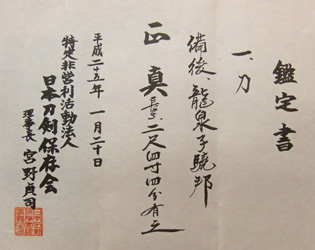 鑑定書
一、刀
備後、龍泉子曉邦
正真 長さ二尺四寸四分有之
平成二十五年 一月二十日
特定非営利活動法人
日本刀剣保存会
理事長 宮野貞司